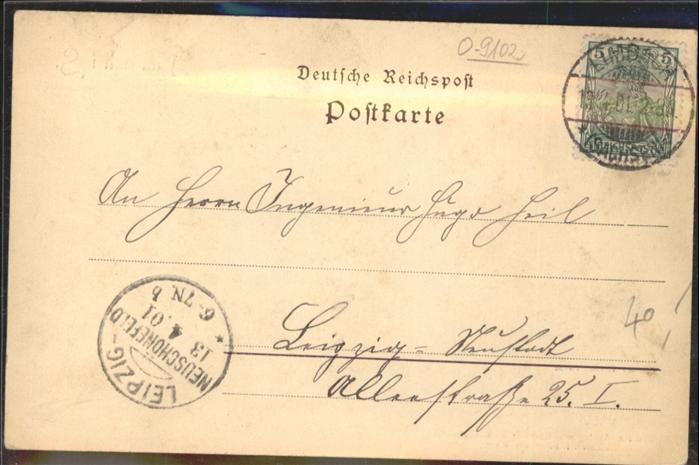 O-9102
Deutsche Reichspost
Postkarte
An Herrn Ingenieur Hugo Heil
Leipzig-Neustadt
Allerstraße 25. I.
40,
LEIPZIG-NEUSCHÖNEFELD
13 4. 01
6-7N. b